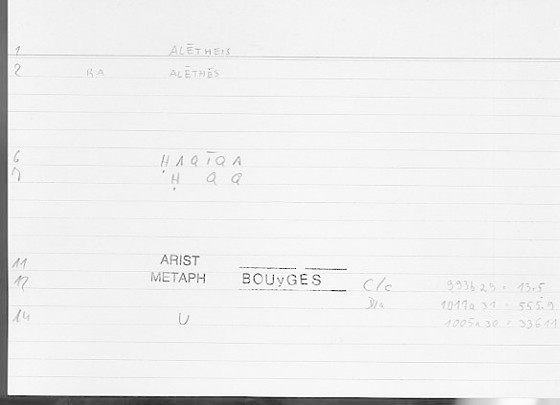 1 ALĒTHEIS
2 RA ALĒTHĒS
6 ḤAQĪQA
7 Ḥ Q Q
11 ARIST
12 METAPH BOUyGES C/c 993b23 = 13.5
1017a31 = 555.9
14 U 1005a30 = 336.11